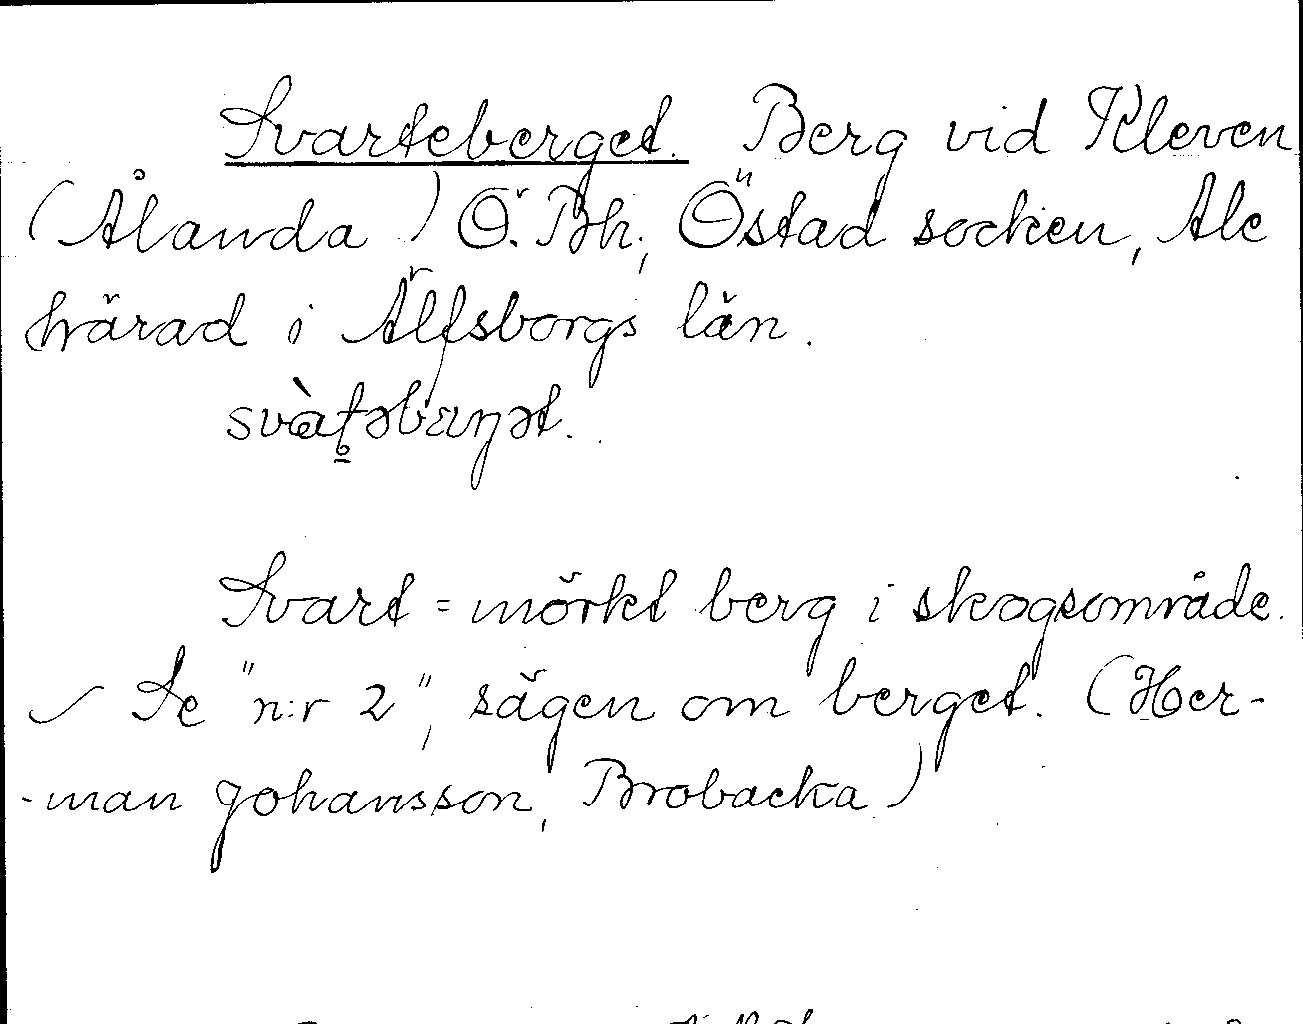 Svarteberget. Berg vid Kleven
(Ålanda) Ö. Bh, Östad socken, Ale
härad i Älfsborgs län.
Svart = mörkt berg i skogsområde.
Se "n:r 2", sägen om berget. (Her-
-man Johansson, Brobacka)